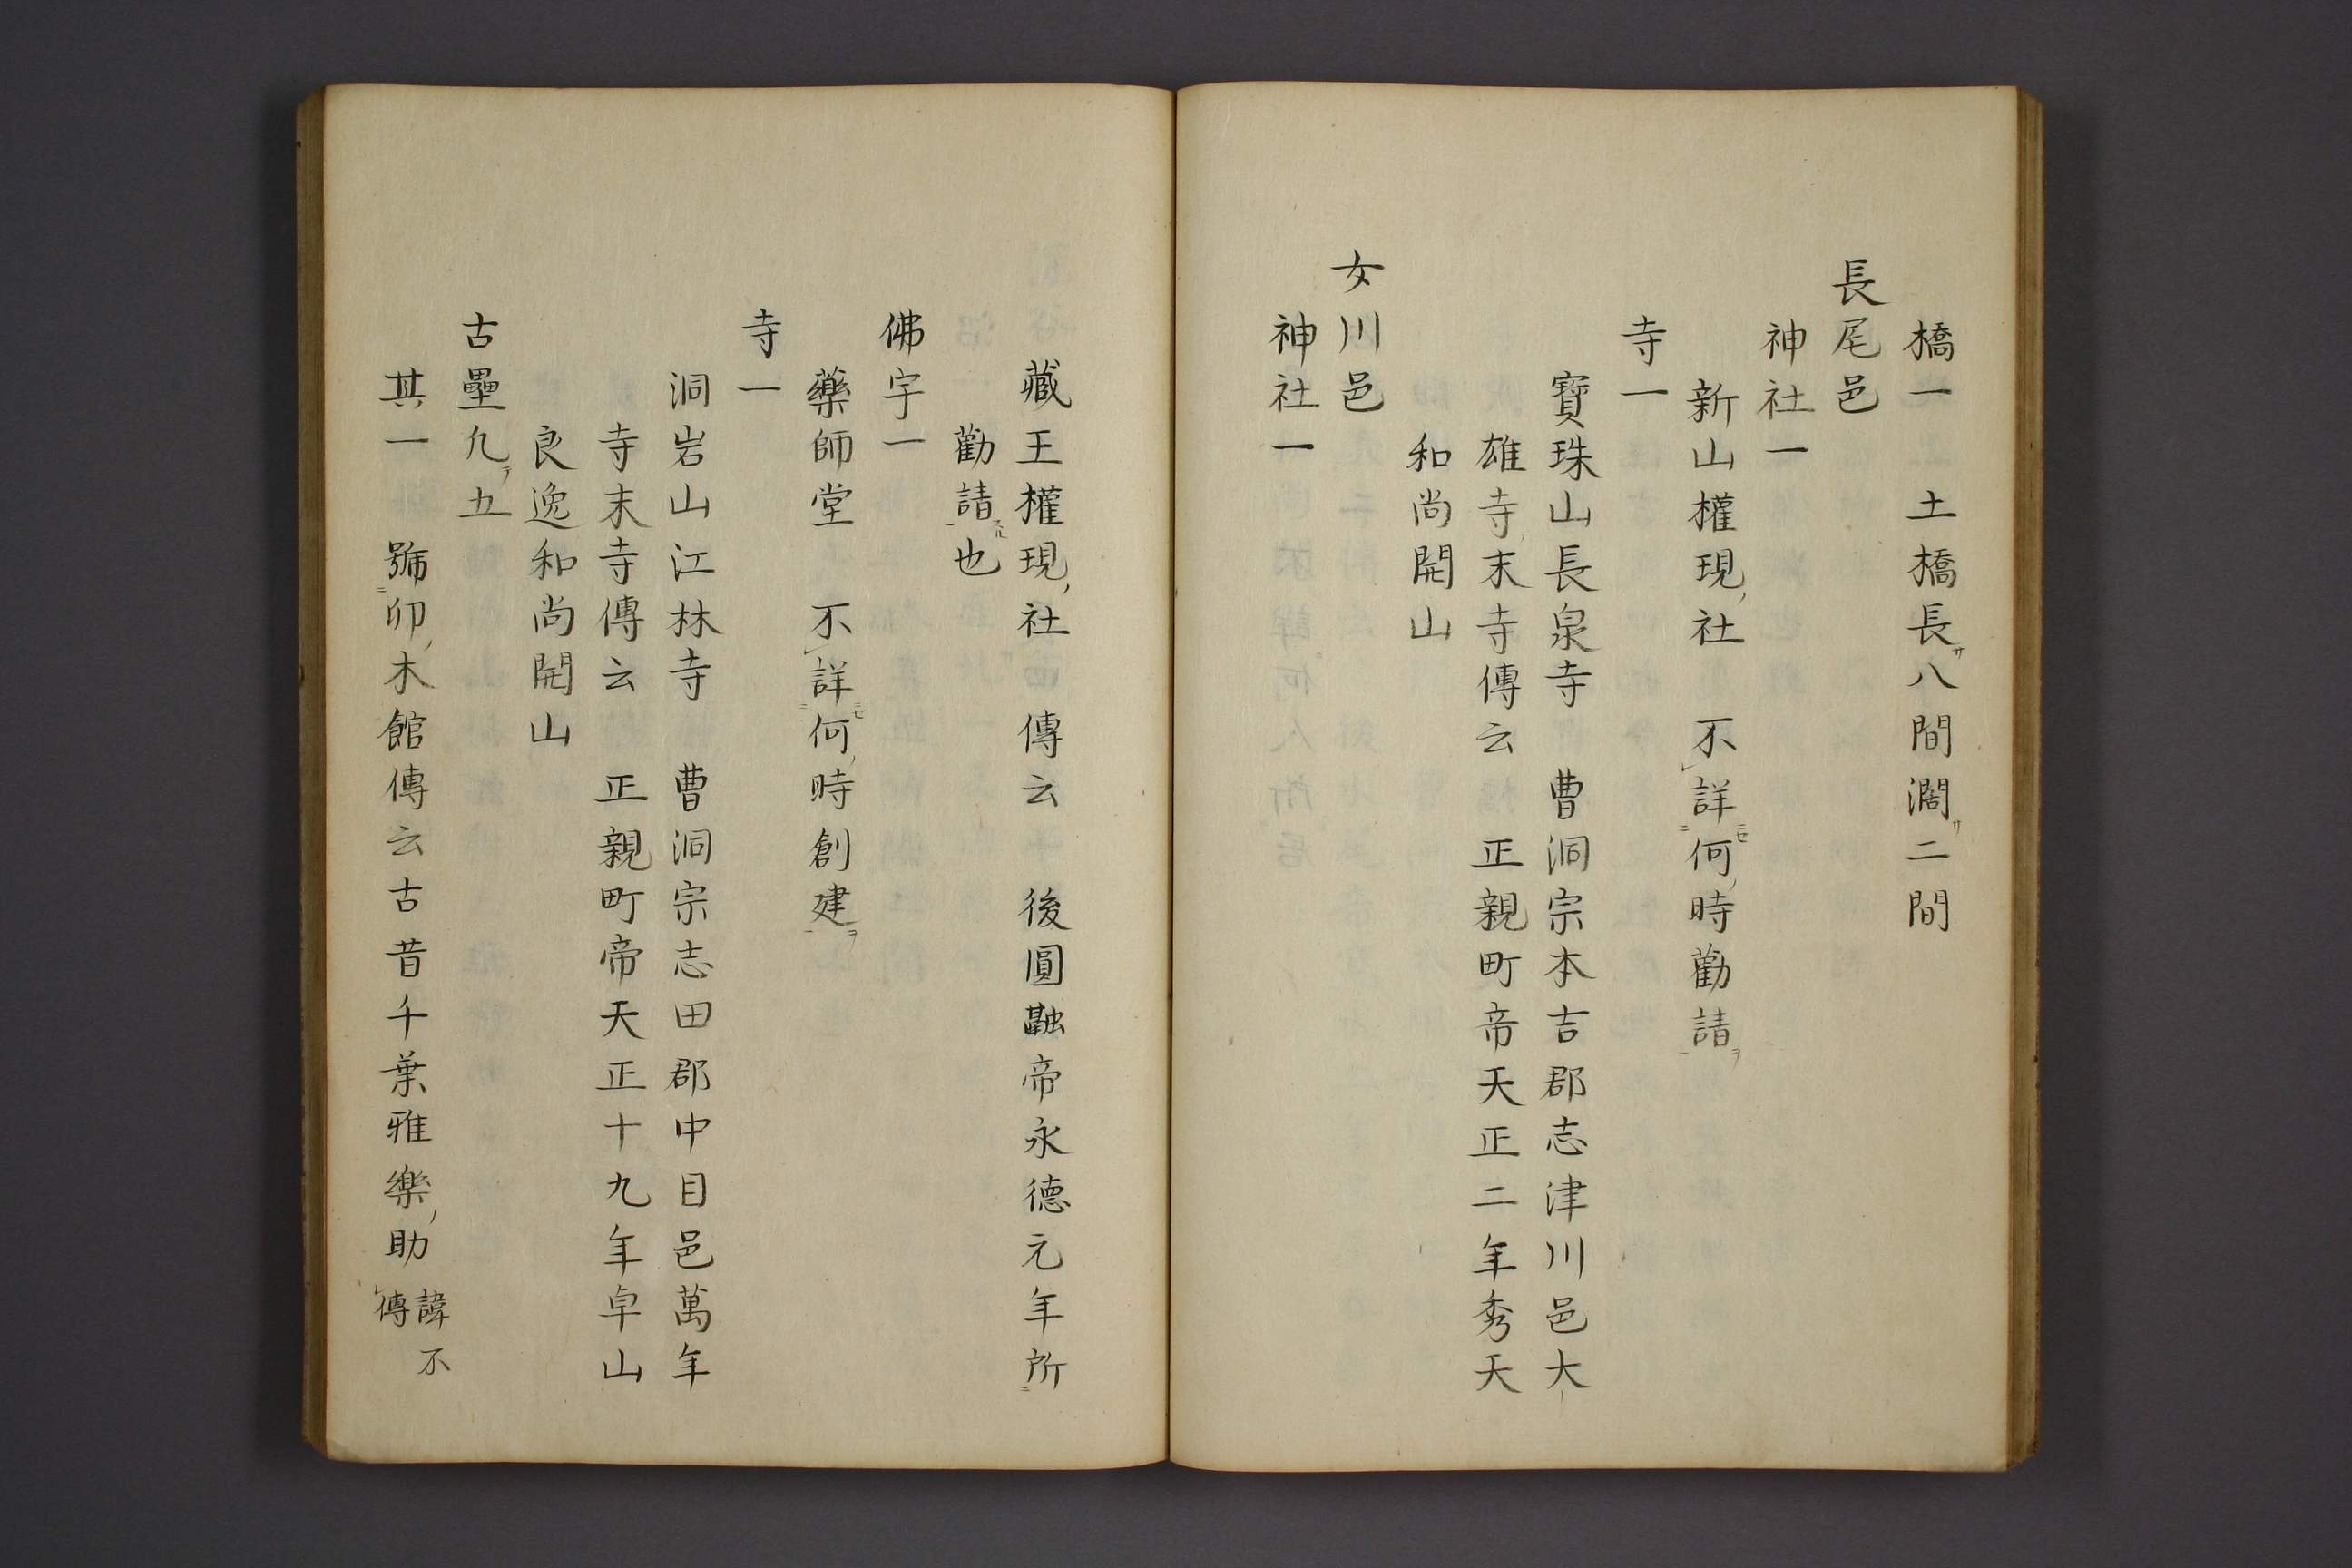 橋一　土橋長サ八間濶サ二間
長尾邑
神社一
新山權現ノ社　不レ詳ニセ二何ノ時勸請ヲ一
寺一
寶珠山長泉寺　曹洞宗本吉郡志津川邑大
雄寺ノ末寺傳云　正親町帝天正二年秀天
和尚開山
女川邑
神社一
藏王權現ノ社　傳云　後圓融帝永德元年所二
勸請スル一也
佛宇一
藥師堂　不レ詳ニセ二何ノ時創建ヲ一
寺一
洞岩山江林寺　曹洞宗志田郡中目邑萬年
寺末寺傳云　正親町帝天正十九年卓山
良逸和尚開山
古壘凡ヲ五
其一　號二卯ノ木館傳云古昔千葉雅樂ノ助諱不
レ傳